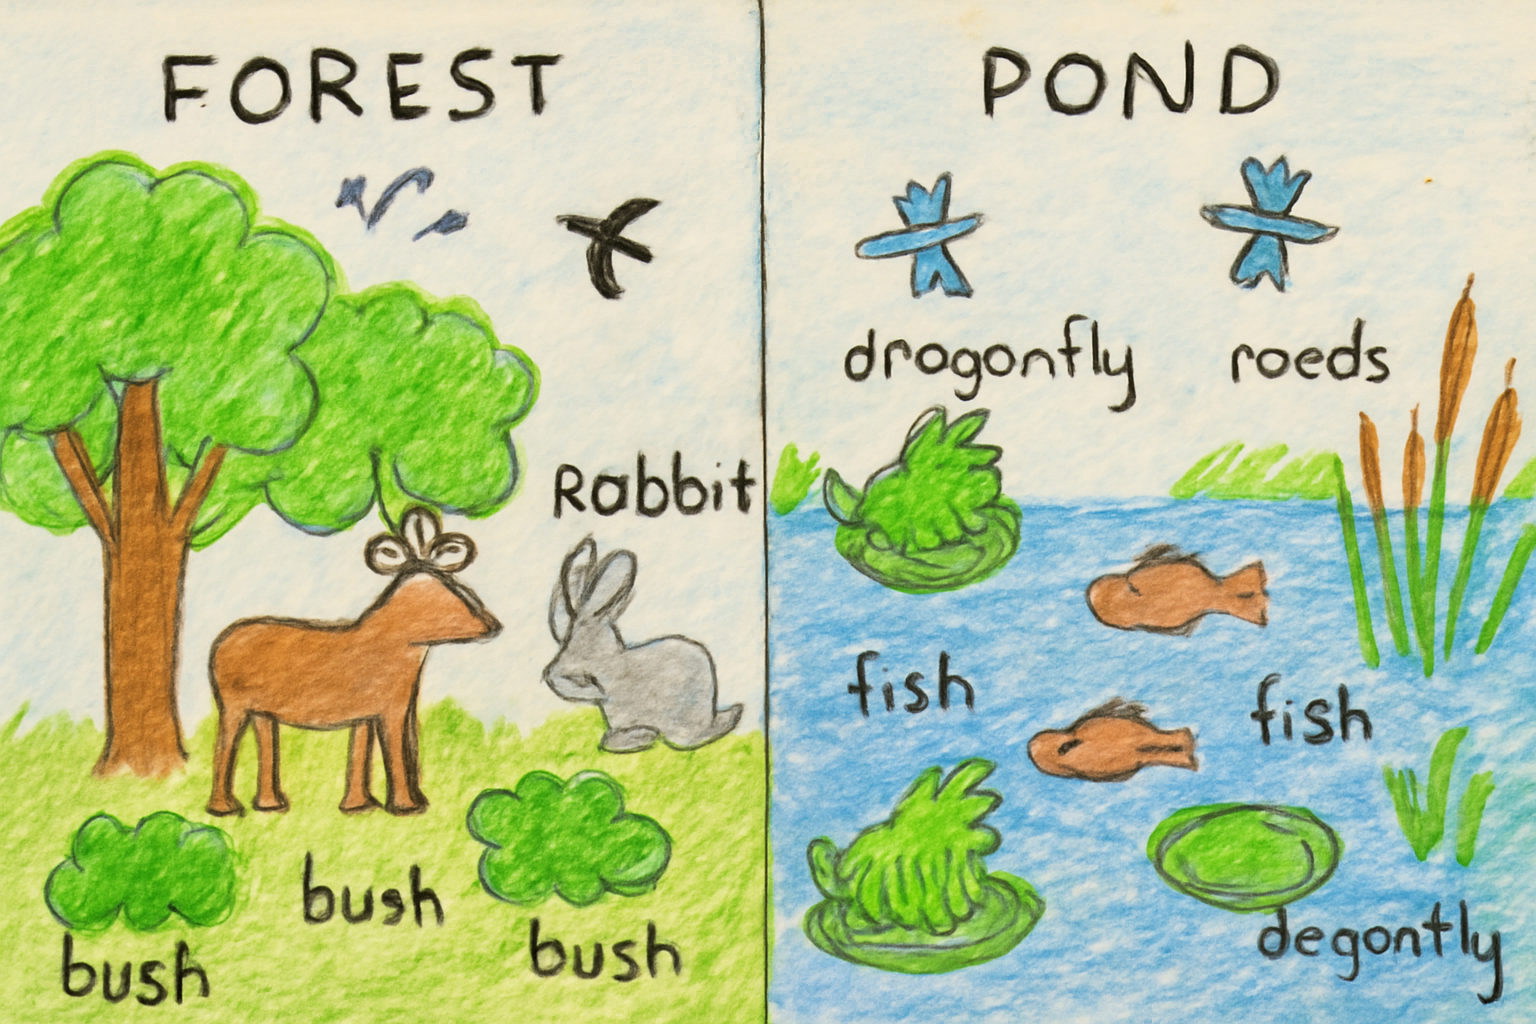 FOREST
Rabbit
bush
bush
bush
POND
drogonfly
roeds
fish
fish
degontly